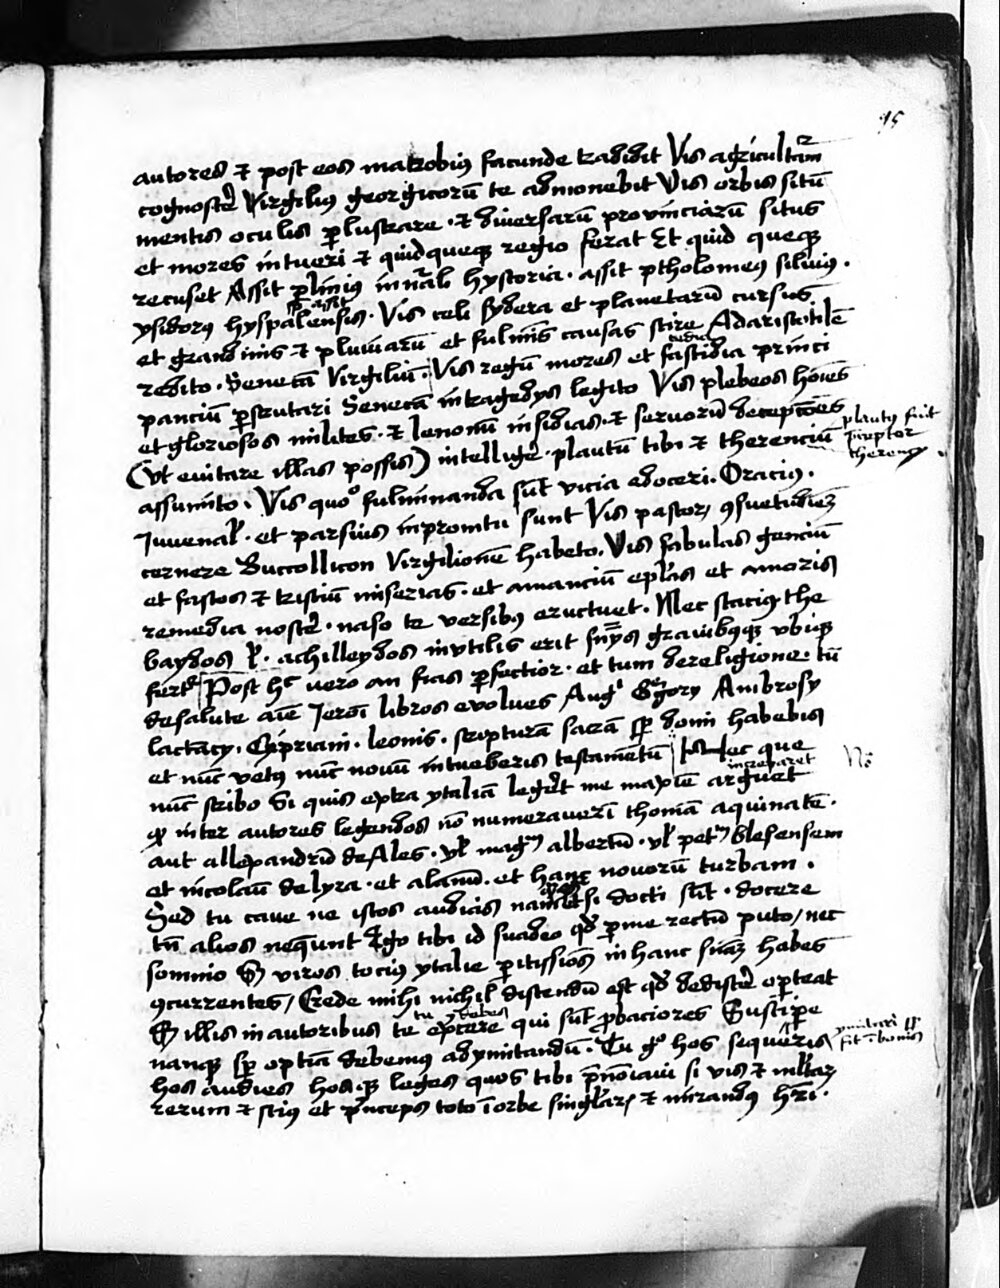 15
autores et post eos makrobius facunde tradidit Vis agriculturam
cognoscere Virgilius georgicorum te admonebit Vis orbis situm
mentis oculis perlustrare · et diversarum provinciarum situs
et mores intueri et quid queque regio ferat Et quid queque
recuset Assit plinius in naturali hystoria · assit ptholomeus silvius ·
assit
ysidorus hyspaliensis · Vis celi sydera et planetarum cursus
et grandinis et pluviarum et fulminis causas scire Ad aristotilem
redito · Senecam Virgilium · Vis regum mores et fastidia princi
pancium perscrutari Senecam in tragedys legito Vis plebeos homines
et gloriosos milites · et lenonum insidias · et servorum deceptiones
plautus fuit
(Ut evitare illas possis) intelligere · plautum tibi et therencium
assumito · Vis quomodo fulminanda sunt vicia edoceri · Oracius ·
Iuvenalis · et parsius inpromtu sunt Vis pastorum consuetudinem
cernere Buccollicon Virgilionem habeto · Vis fabulas gencium
et fastos et tristium miserias · et amancium epistolas et amoris
remedia noscere · naso te versibus eructuet · Nec stacius the
baydos vel · achilleydos inutilis erit ubique
fertur Post hec vero an fias perfectior · et tum de religione · tum
de salute anime Ieronimi libros evolues Augustini Gregory Ambrosy
lactancy · Cipriani · leonis · scripturam sacram semper domi habebis
et nunc vetus nunc novum intueberis testamentum Hec que
increparet
nunc scribo Si quis extra ytaliam legeret me maxime argueret
quod inter autores legendos non numeraverim thomam aquinatem ·
aut allexandrum de Ales · vel magnum albertum · vel petrum blesensem
et nicolaum de lyra · et alanum · et hanc novorum turbam ·
Sed tu cave ne istos audias nam etsi docti sunt · docere
tamen alios nequeunt Ego tibi id suadeo quod per me rectum puto / nec
somnio Sed viros tocius ytalie peritissimos in hanc sentenciam habes
concurrentes / Crede mihi nichil discendum est quod dediscere oporteat
tu debes
Sed illis in autoribus te exercere qui sunt probaciores Suscipere
namque semper optima debemus ad ymitandum · Tu ergo hos sequeris
hos audies hosque leges quos tibi prenominavi si vis et militarium
rerum et scius et princeps toto in orbe singularis et mirandus haberi ·